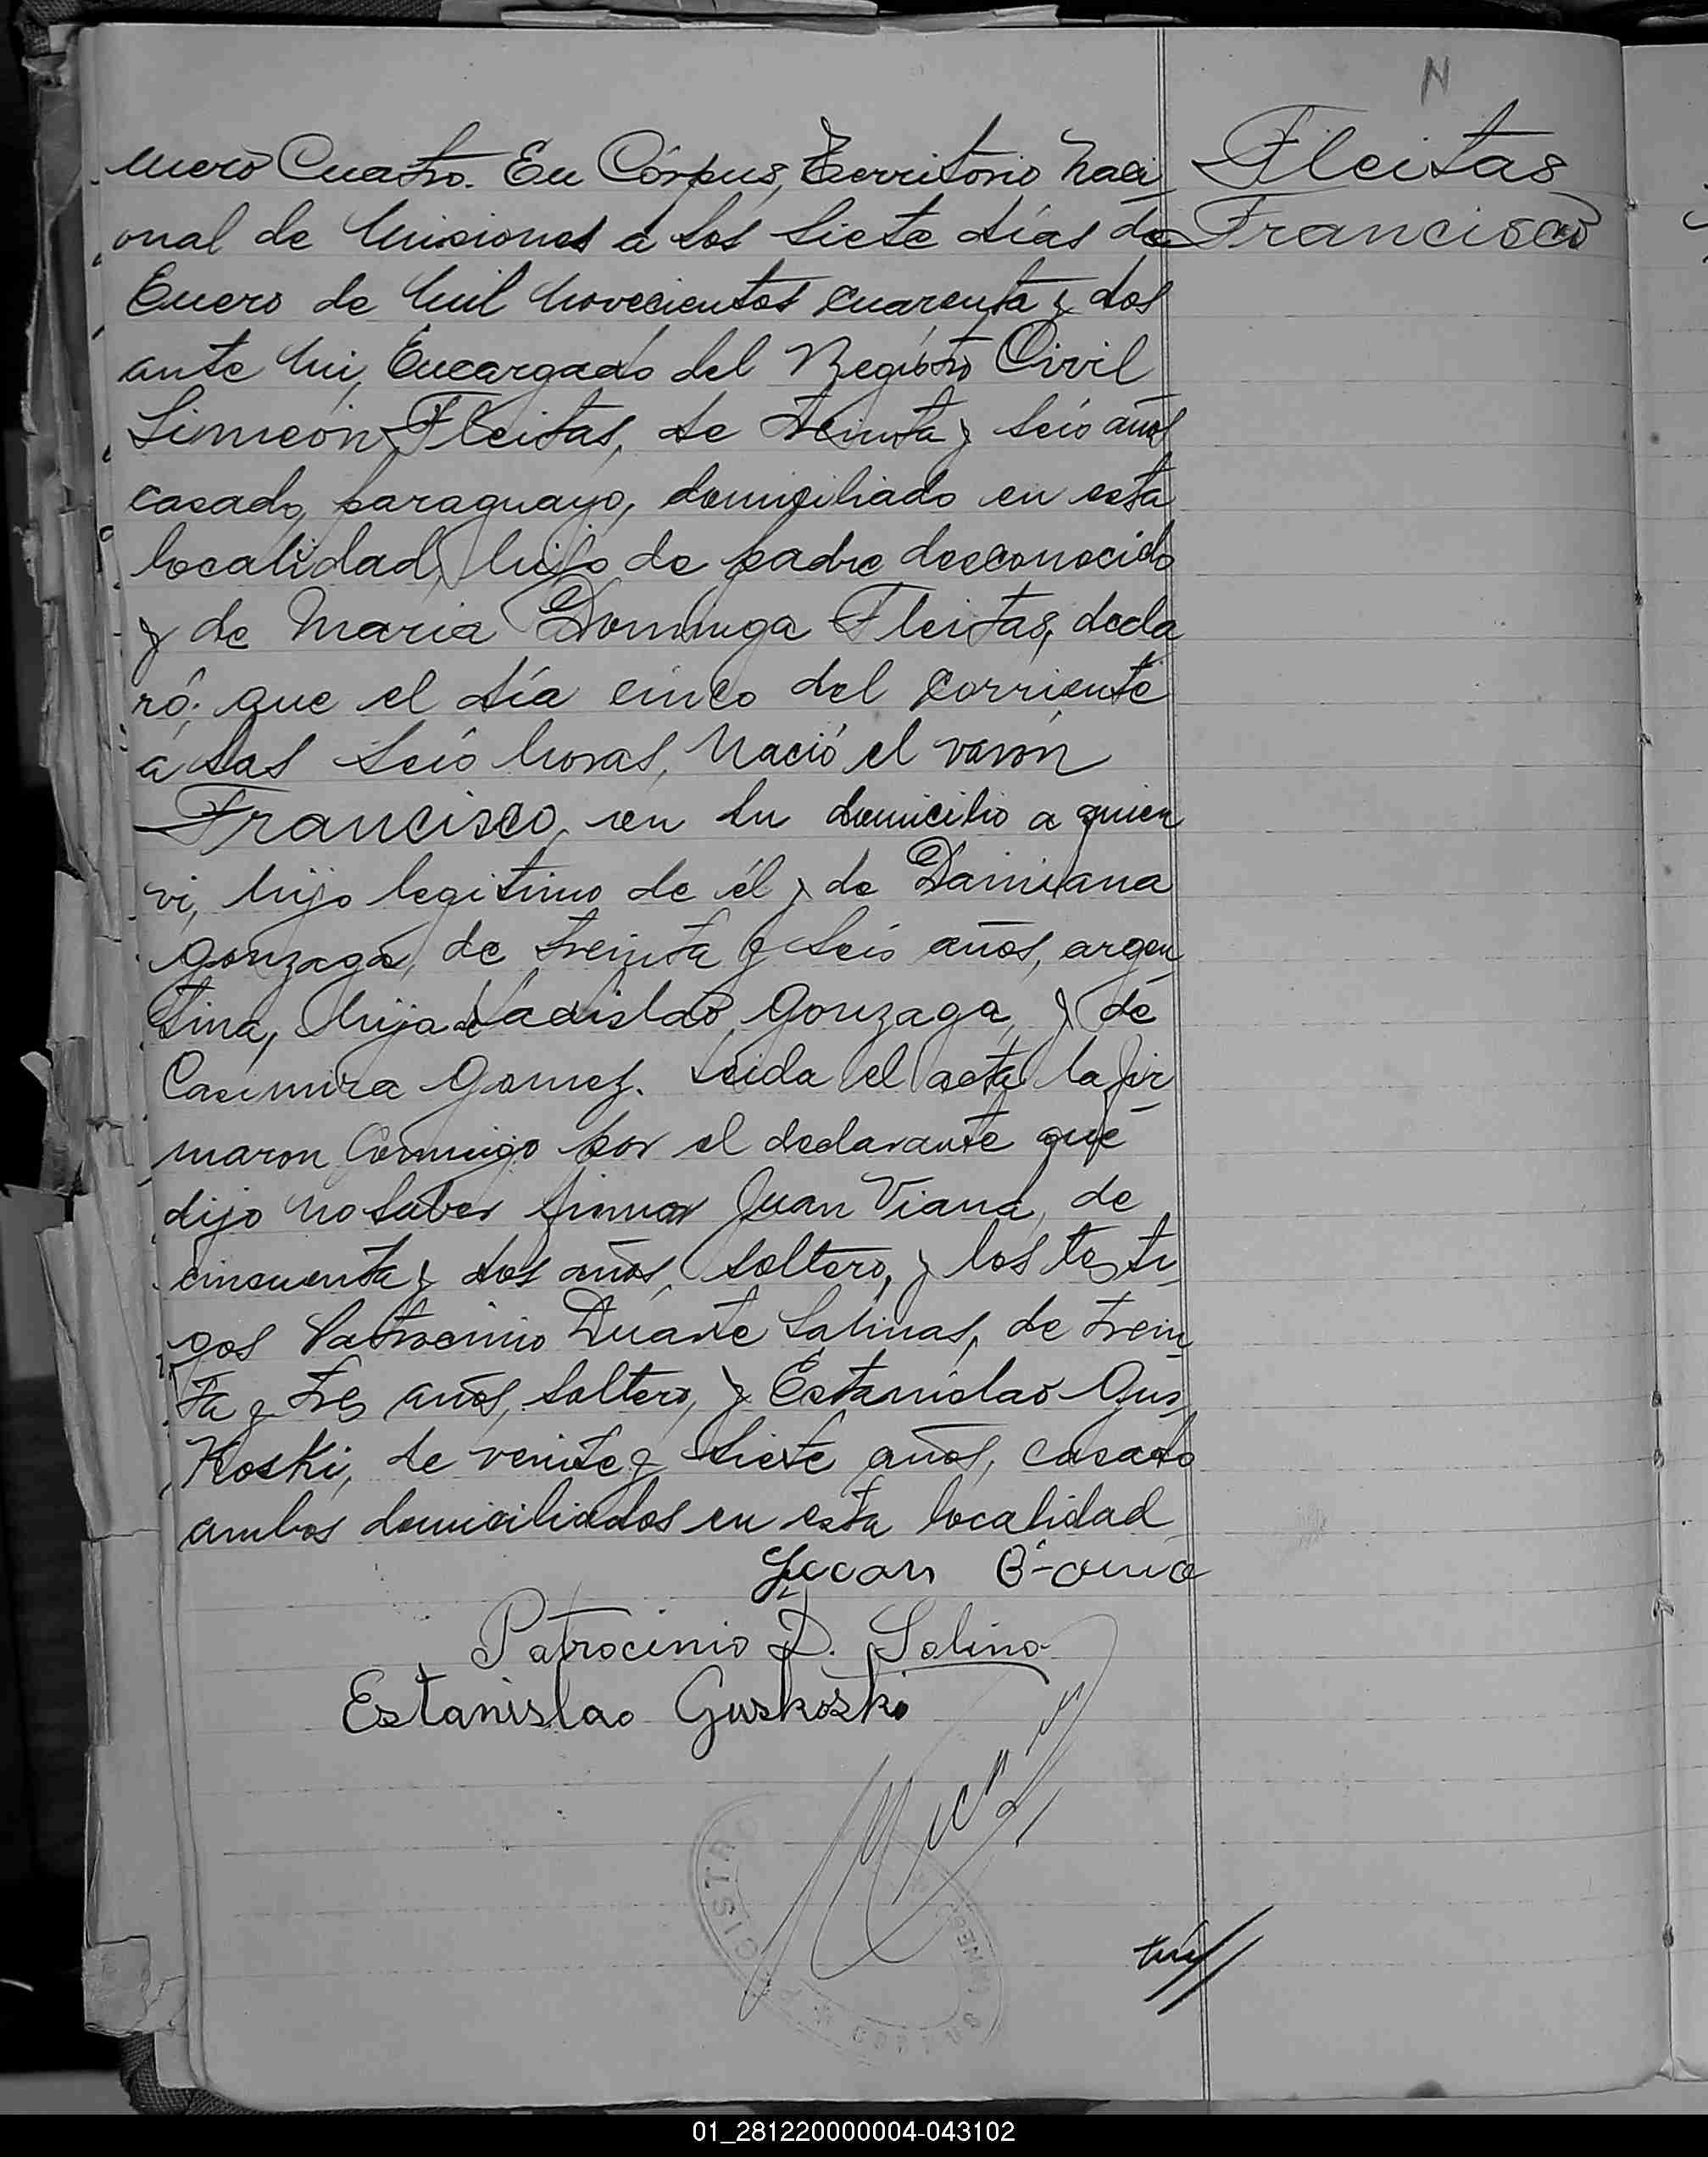 N
Fleitas
Francisco
mero Cuatro. En Córpus, Territorio Naci
onal de Misiones a los siete días de
Enero de mil novecientos cuarenta y dos
ante mi, Encargado del Registro Civil
Simeón Fleitas, de treinta y seis años
casado, paraguayo, domiciliado en esta
localidad, hijo de padre desconocido
y de Maria Dominga Fleitas, decla
ró: que el día cinco del corriente
á las seis horas, nació el varón
Francisco, en su domicilio a quien
vi, hijo legitimo de él y de Damiana
Gonzaga, de treinta y seis años, argen
tina, hija de Ladislao Gonzaga, y de
Casimira Gomez. Leida el acta la fir
maron conmigo por el declarante que
dijo no saber firmar Juan Viana, de
cincuenta y dos años, soltero, y los testi
gos Patrocinio Duarte Salinas, de trein
ta y tres años, soltero, y Estanislao Gus
Koski, de veinte y siete años, casado
ambos domiciliados en esta localidad
Juan
Patrocinio D. Salina
Estanislao Guskoski
01_281220000004-043102